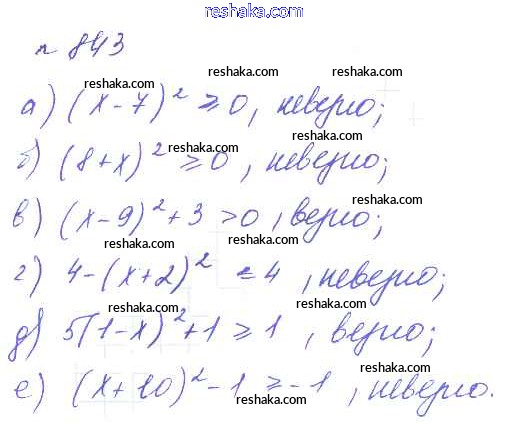 reshaka.com
n 843
reshaka.com reshaka.com reshaka.com
а) (x-7)² ≥ 0, неверно;
reshaka.com reshaka.com
б) (8+x)² ≥ 0, неверно;
reshaka.com reshaka.com
в) (x-9)²+3 >0, верно;
reshaka.com reshaka.com
г) 4-(x+2)² ≤ 4, неверно;
reshaka.com reshaka.com
д) 5(1-x)²+1 ≥ 1, верно;
reshaka.com reshaka.com
е) (x+10)²-1 ≥ -1, неверно.
reshaka.com